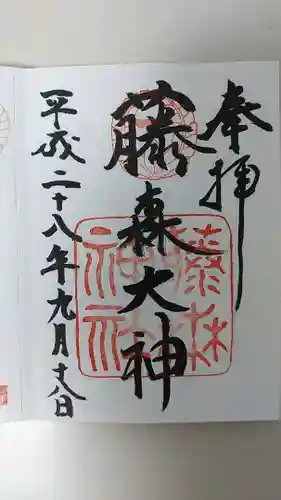 奉拝
藤森大神
平成二十八年九月十八日
藤森
神社